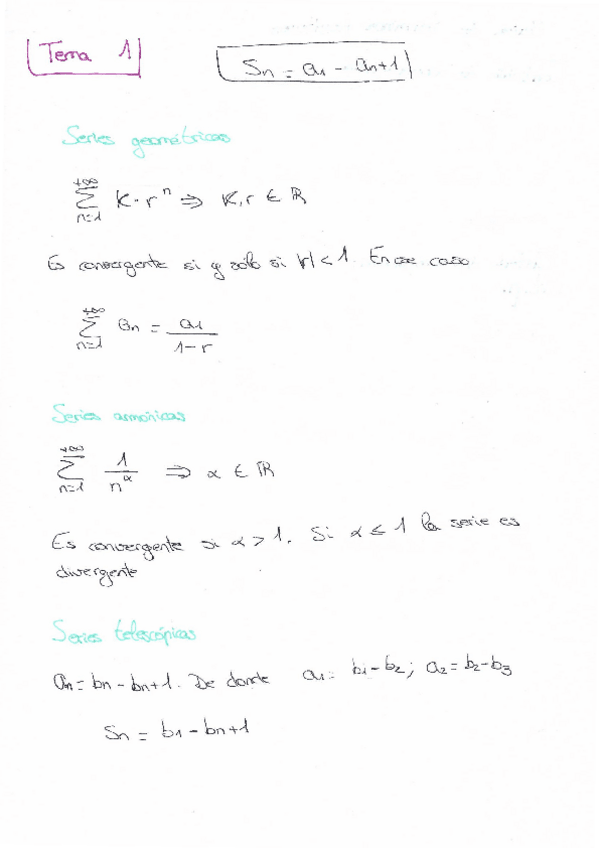 Tema 1
Sn = a1 - an+1
Series geométricas
+∞ ∑ n=1 K · r^n ⇒ K, r ∈ ℝ
Es convergente si y sólo si |r| < 1. En ese caso
+∞ ∑ n=1 an = a1 / 1-r
Series armónicas
+∞ ∑ n=1 1 / n^α ⇒ α ∈ ℝ
Es convergente si α > 1. Si α ≤ 1 la serie es
divergente
Series telescópicas
an = bn - bn+1. De donde a1 = b1-b2; a2 = b2-b3
Sn = b1 - bn+1